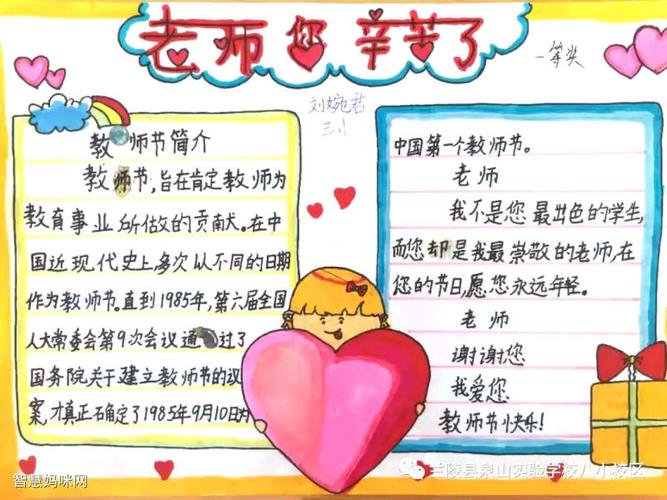 老师您辛苦了
一等奖
刘婉君
三1
教师节简介
教师节,旨在肯定教师为
教育事业所做的贡献。在中
国近现代史上,多次从不同的日期
作为教师节。直到1985年,第六届全国
人大常委会第9次会议通过了
国务院关于建立教师节的议
案,才真正确定了1985年9月10日为
中国第一个教师节。
老师
我不是您最出色的学生,
而您却是我最崇敬的老师,在
您的节日,愿您永远年轻。
老师
谢谢您
我爱您
教师节快乐!
智慧妈咪网
兰陵县泉山实验学校八小校区